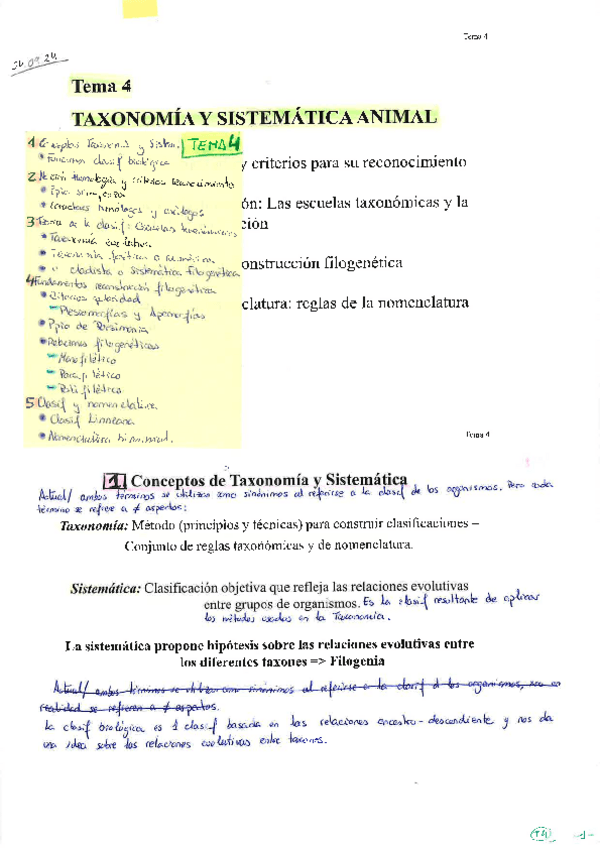 Tema 4
24.09.24
Tema 4
TAXONOMÍA Y SISTEMÁTICA ANIMAL
1 Conceptos Taxonomía y Sistem. TEMA 4
• Funciones clasif biológica
y criterios para su reconocimiento
2 Noción Homología y criterios reconocimiento
ón: Las escuelas taxonómicas y la
• Caracteres homólogos y análogos
ción
3 Teoría de la clasif: Escuelas taxonómicas
• Taxonomía evolutiva
• Taxonomía fenética o numérica
onstrucción filogenética
• " cladista o Sistemática filogenética
4 Fundamentos reconstrucción filogenética
• Criterios polaridad
clatura: reglas de la nomenclatura
– Plesiomorfías y Apomorfías
• Ppio de Parsimonia
• Relaciones filogenéticas
– Monofilético
– Parafilético
– Polifilético
5 Clasif y nomenclatura
• Clasif Linneana
• Nomenclatura binominal.
Tema 4
1. Conceptos de Taxonomía y Sistemática
Actual/ ambos términos se utilizan como sinónimos al referirse a la clasif de los organismos. Pero cada
término se refiere a ≠ aspectos:
Taxonomía: Método (principios y técnicas) para construir clasificaciones –
Conjunto de reglas taxonómicas y de nomenclatura.
Sistemática: Clasificación objetiva que refleja las relaciones evolutivas
entre grupos de organismos. Es la clasif resultante de aplicar
los métodos usados en la Taxonomía.
La sistemática propone hipótesis sobre las relaciones evolutivas entre
los diferentes taxones => Filogenia
Actual/ ambos términos se utilizan como sinónimos al referirse a la clasif d los organismos, pero en
realidad se refieren a ≠ aspectos.
La clasif biológica es 1 clasif basada en las relaciones ancestro-descendiente y nos da
una idea sobre las relaciones evolutivas entre taxones.
T4 -1-